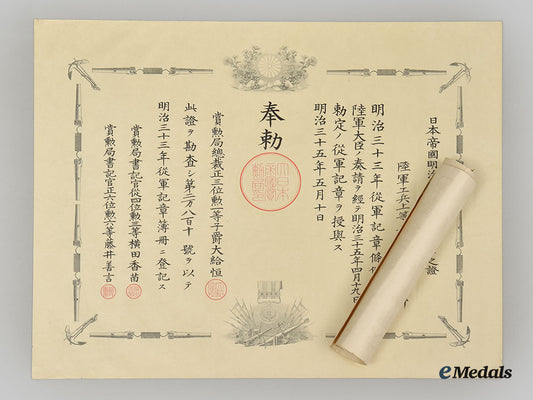 日本帝國明治
之證
陸軍工兵上等
明治三十三年從軍記章條
陸軍大臣ノ奏請ヲ經テ明治三十五年四月十九日
勅定ノ從軍記章ヲ授與ス
明治三十五年五月十日
奉勅
賞勲局總裁正三位勲一等子爵大給恒
此證ヲ勘査シ第二万八百十號ヲ以テ
明治三十三年從軍記章簿冊ニ登記ス
賞勲局書記官從四位勲三等横田香苗
賞勲局書記官正六位勲六等藤井善言
eMedals